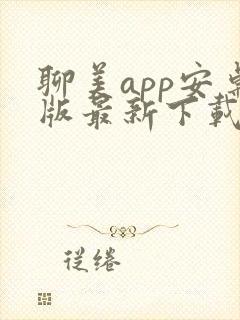 聊美app安卓
版最新下载
従绻